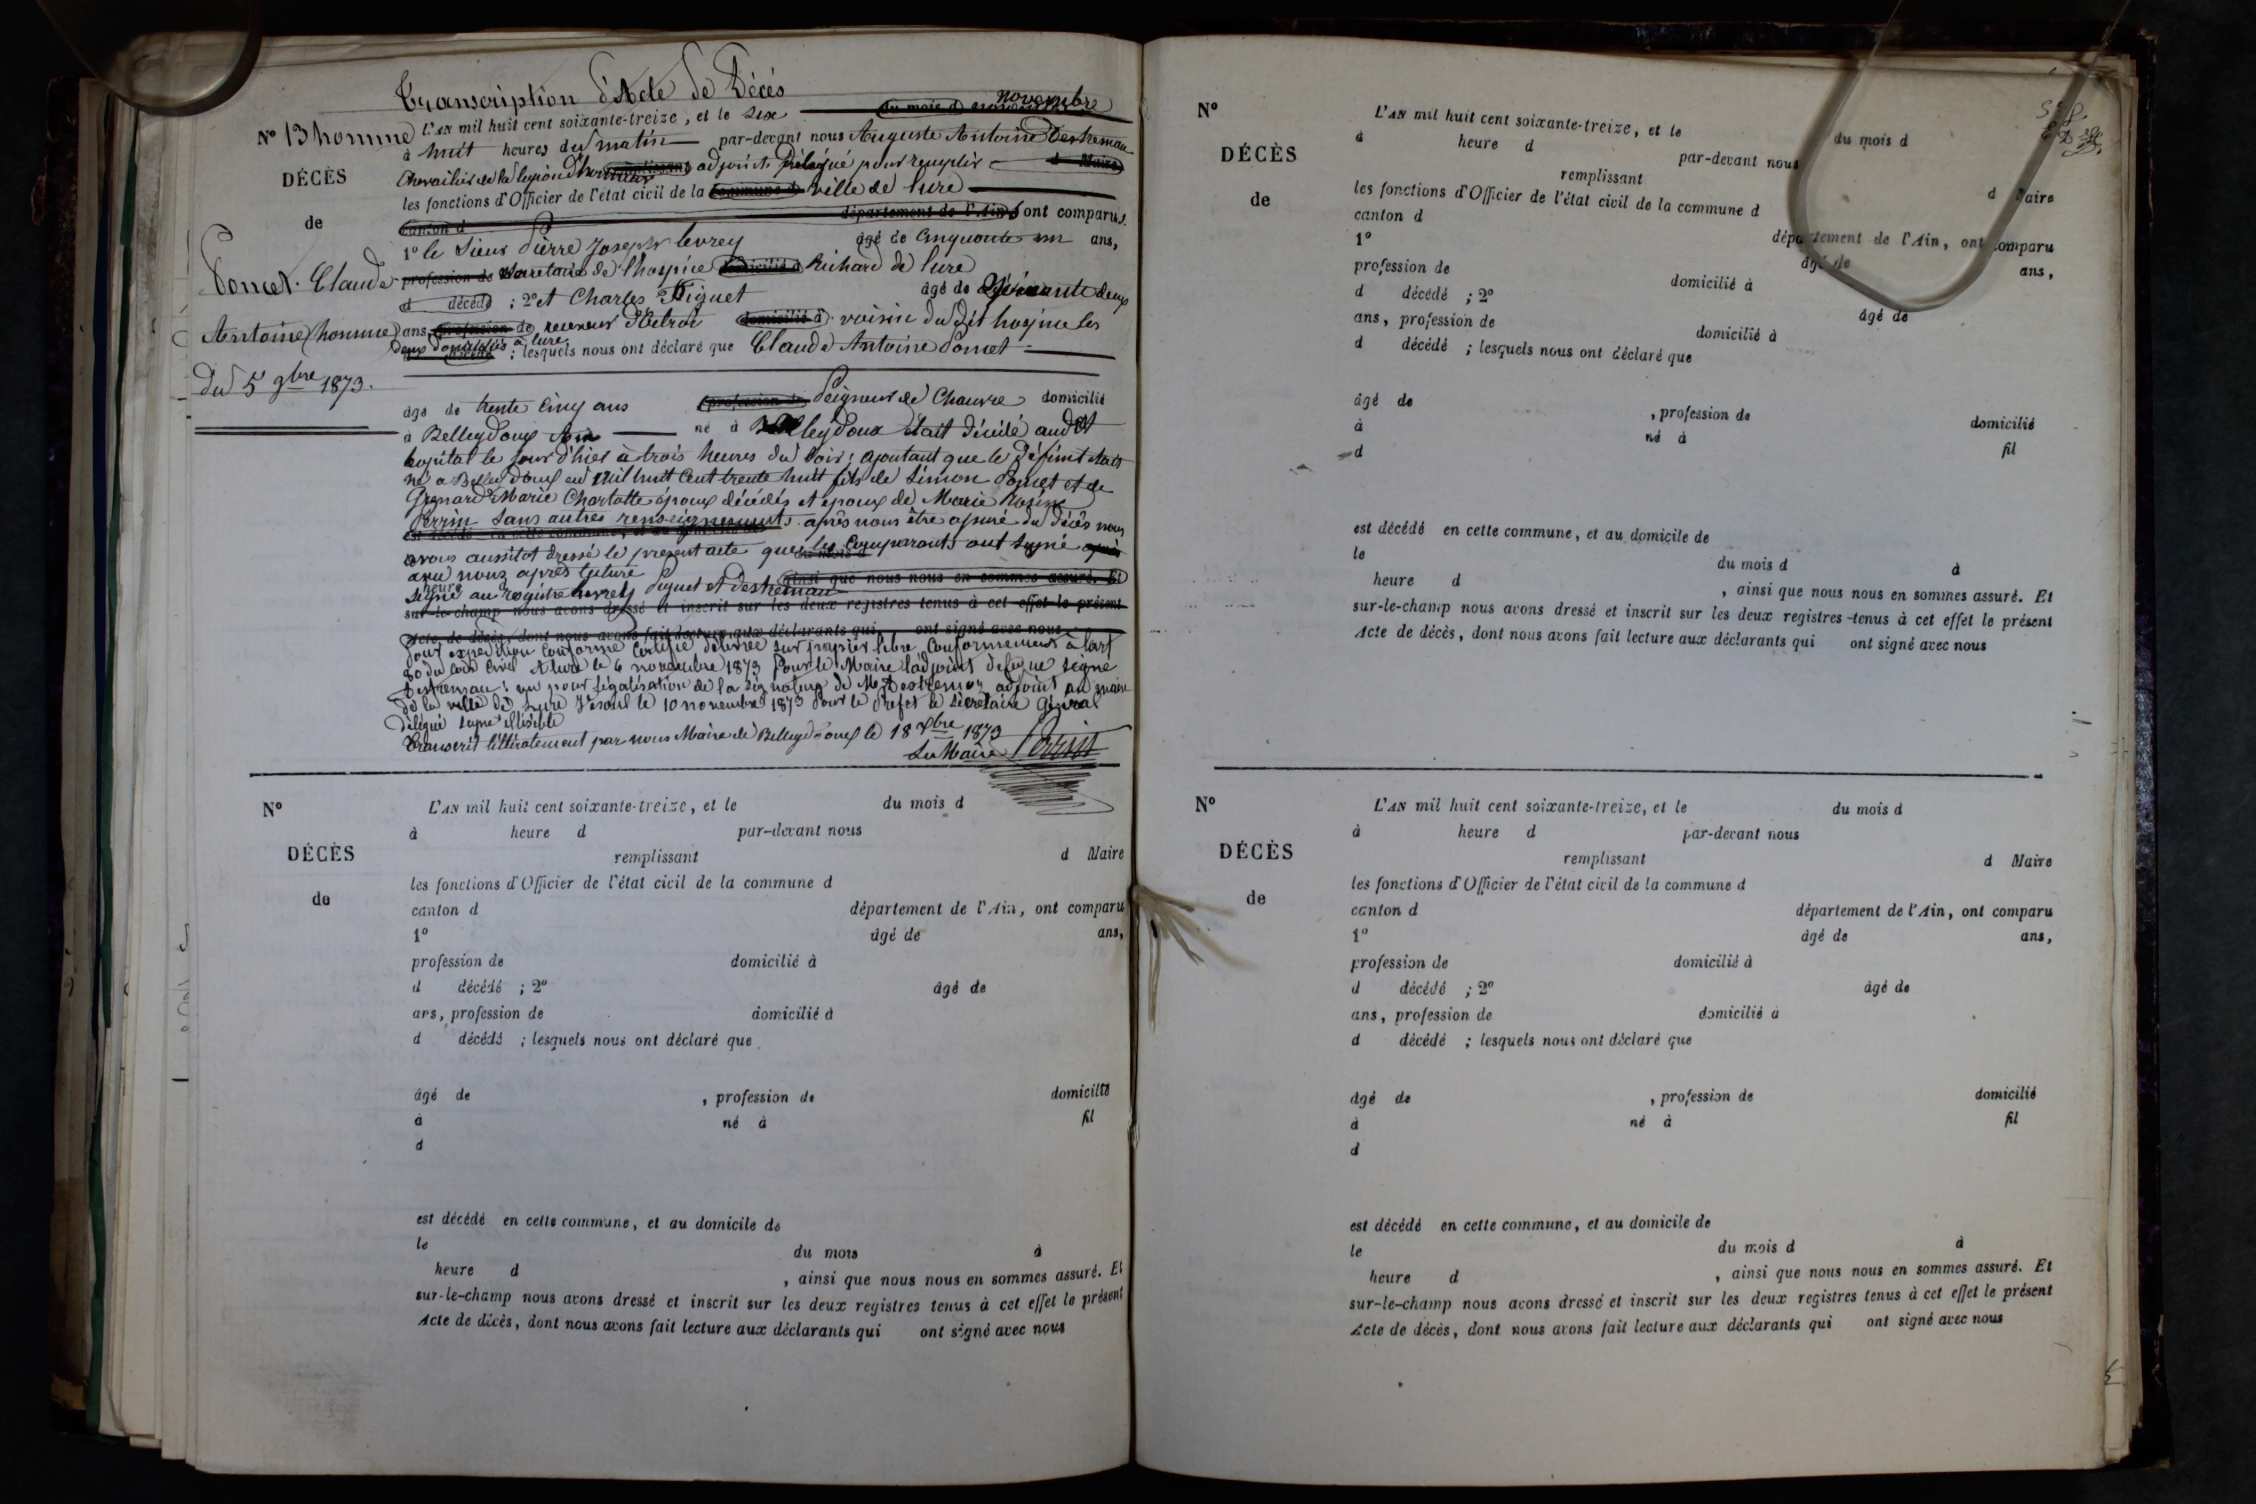 Transcription d'Acte de Décès
N° 13 homme
DÉCÈS
de
Poncet Claude
Antoine (homme)
Du 5 9bre 1873.
L'AN mil huit cent soixante-treize, et le Six du mois d novembre
à huit heures du matin par-devant nous Auguste Antoine Destremau
Chevalier de la légion d'honneur remplissant adjoint Délégué pour remplir d Maire
les fonctions d'Officier de l'état civil de la commune d ville de Lure
canton d département de l'Ain, ont comparus
1° le Sieur Pierre Joseph Levrey âgé de Cinquante un ans,
profession de Secretaire de l'hospice domicilié à Richard de Lure
d décédé ; 2° et Charles Piguet âgé de deux
ans, profession de receveur d'Octroi domicilié à voisin du dit hospice les
deux domiciliés à Lure ; lesquels nous ont déclaré que Claude Antoine Poncet
âgé de trente Cinq ans profession de Peigneur de Chanvre domicilié
à Belleydoux Ain né à Belleydoux était décédé audit
hopital le jour d'hier à trois heures du Soir ; ajoutant que le Défunt était
né à Belleydoux en mil huit Cent trente huit fils de Simon Poncet et de
Grenard Marie Charlotte époux décédés et époux de Marie Rosine
Perrin Sans autres renseignements. après nous être assuré du Décès nous
avons aussitot dressé le present acte que les Comparants ont signé après
avec nous après lecture ainsi que nous nous en sommes assuré. Et
heure
signé au régistre Levrey Piguet et Destremau
sur-le-champ nous avons dressé et inscrit sur les deux registres tenus à cet effet le présent
Acte de décès, dont nous avons fait lecture aux déclarants qui ont signé avec nous
Pour expédition Conforme Certifié délivrée sur papier libre Conformément à l'art
80 du Code Civil A Lure le 6 novembre 1873 Pour le Maire l'adjoint délégué signé
Destremau ; vu pour légalisation de la signature de Mr Destremau adjoint au maire
de la ville de Lure Vesoul le 10 novembre 1873 Pour le Préfet le Sécretaire Général
Délégué signé illisible
Transcrit littéralement par nous Maire de Belleydoux le 18 1873
Le Maire Perrin
N°
DÉCÈS
de
L'AN mil huit cent soixante-treize, et le du mois d
à heure d par-devant nous
remplissant d Maire
les fonctions d'Officier de l'état civil de la commune d
canton d département de l'Ain, ont comparu
1° âgé de ans,
profession de domicilié à
d décédé ; 2° âgé de
ans, profession de domicilié à
d décédé ; lesquels nous ont déclaré que
âgé de , profession de domicilié
à né à fil
d
est décédé en cette commune, et au domicile de
le du mois à
heure d , ainsi que nous nous en sommes assuré. Et
sur-le-champ nous avons dressé et inscrit sur les deux registres tenus à cet effet le présent
Acte de décès, dont nous avons fait lecture aux déclarants qui ont signé avec nous
N°
DÉCÈS
de
L'AN mil huit cent soixante-treize, et le du mois d
à heure d par-devant nous
remplissant d Maire
les fonctions d'Officier de l'état civil de la commune d
canton d département de l'Ain, ont comparu
1° âgé de ans,
profession de domicilié à
d décédé ; 2° âgé de
ans, profession de domicilié à
d décédé ; lesquels nous ont déclaré que
âgé de , profession de domicilié
à né à fil
d
est décédé en cette commune, et au domicile de
le du mois d à
heure d , ainsi que nous nous en sommes assuré. Et
sur-le-champ nous avons dressé et inscrit sur les deux registres tenus à cet effet le présent
Acte de décès, dont nous avons fait lecture aux déclarants qui ont signé avec nous
N°
DÉCÈS
de
L'AN mil huit cent soixante-treize, et le du mois d
à heure d par-devant nous
remplissant d Maire
les fonctions d'Officier de l'état civil de la commune d
canton d département de l'Ain, ont comparu
1° âgé de ans,
profession de domicilié à
d décédé ; 2° âgé de
ans, profession de domicilié à
d décédé ; lesquels nous ont déclaré que
âgé de , profession de domicilié
à né à fil
d
est décédé en cette commune, et au domicile de
le du mois d à
heure d , ainsi que nous nous en sommes assuré. Et
sur-le-champ nous avons dressé et inscrit sur les deux registres tenus à cet effet le présent
Acte de décès, dont nous avons fait lecture aux déclarants qui ont signé avec nous